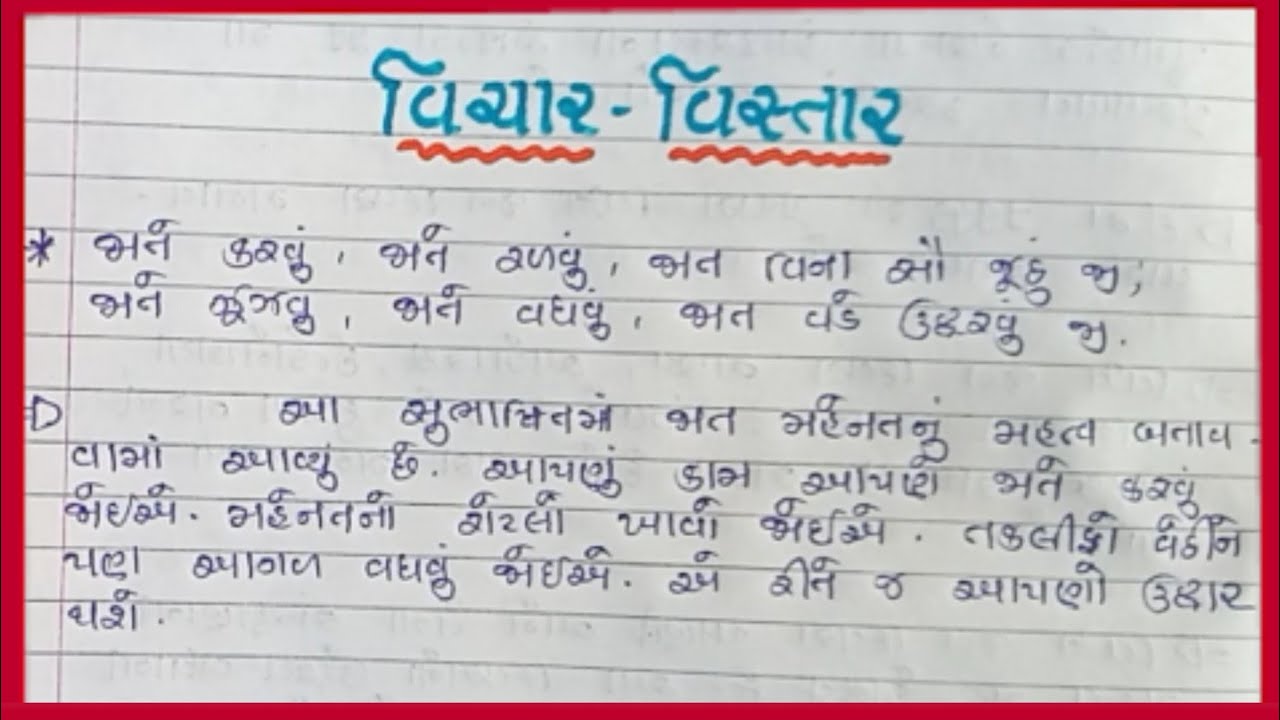 વિચાર - વિસ્તાર
* જાતે કરવું, જાતે રળવું, જાત વિના સૌ જૂઠું જી;
જાતે ઝૂઝવું, જાતે વધવું, જાત વડે ઉદ્ધરવું જી.
આ સુભાષિતમાં જાત મહેનતનું મહત્વ બતાવ-
વામાં આવ્યું છે. આપણું કામ આપણે જાતે કરવું
જોઈએ. મહેનતનો રોટલો ખાવો જોઈએ. તકલીફો વેઠીને
પણ આગળ વધવું જોઈએ. એ રીતે જ આપણો ઉદ્ધાર
થશે.